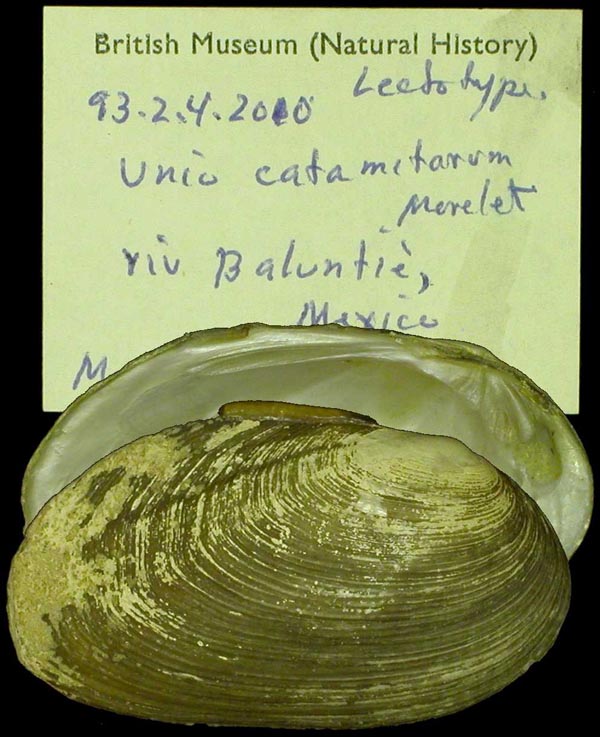 British Museum (Natural History)
Lectotype.
93.2.4.2010
Unio catamitarum
Morelet
riv Baluntiè,
Mexico
M